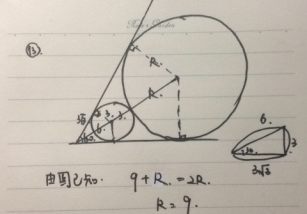 13.
R.
R.
3. 3.
6.
6.
3
30°
3√3
由图已知. 9+R. = 2R.
R = 9.